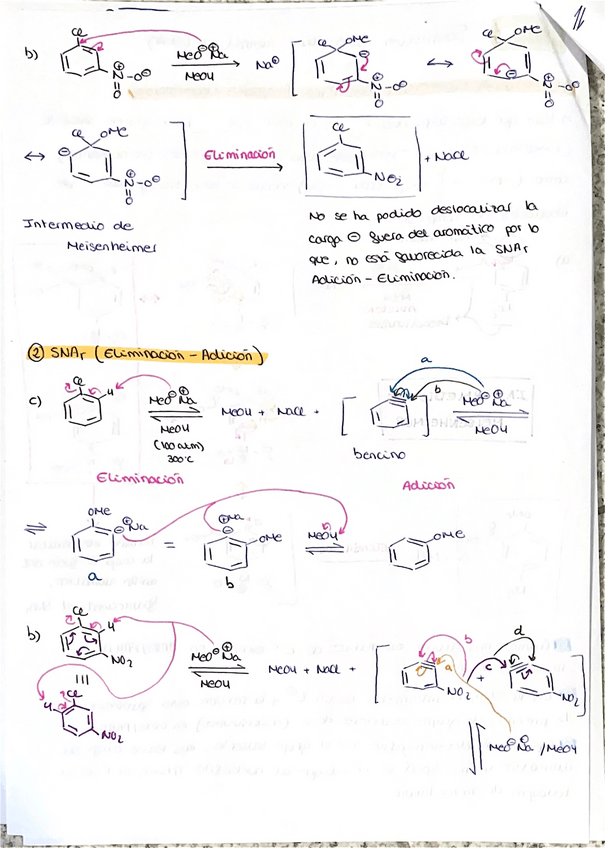 11
b)
Cl
MeO⊖ ⊕Na
MeOH
N⊕-O⊖
O
Na⊕
Cl OMe
⊖
N⊕-O⊖
O
↔
Cl OMe
⊖
N⊕-O⊖
O
↔
Cl OMe
⊖
N⊕-O⊖
O
Eliminación
Cl
NO2
+ NaCl
Intermedio de
Meisenheimer
No se ha podido deslocalizar la
carga ⊖ fuera del aromático por lo
que, no está favorecida la SNAr
Adición - Eliminación.
② SNAr (Eliminación - Adición)
c)
Cl
H
MeO⊖ ⊕Na
MeOH
(100 atm)
300°C
MeOH + NaCl +
a
b
bencino
MeO⊖ ⊕Na
MeOH
Eliminación
Adición
⇌
OMe
⊖ ⊕Na
a
=
⊕Na
⊖
OMe
b
MeOH
OMe
b)
Cl
H
NO2
Cl
H
NO2
MeO⊖ ⊕Na
MeOH
MeOH + NaCl +
b
a
NO2
+
d
c
NO2
MeO⊖ ⊕Na / MeOH